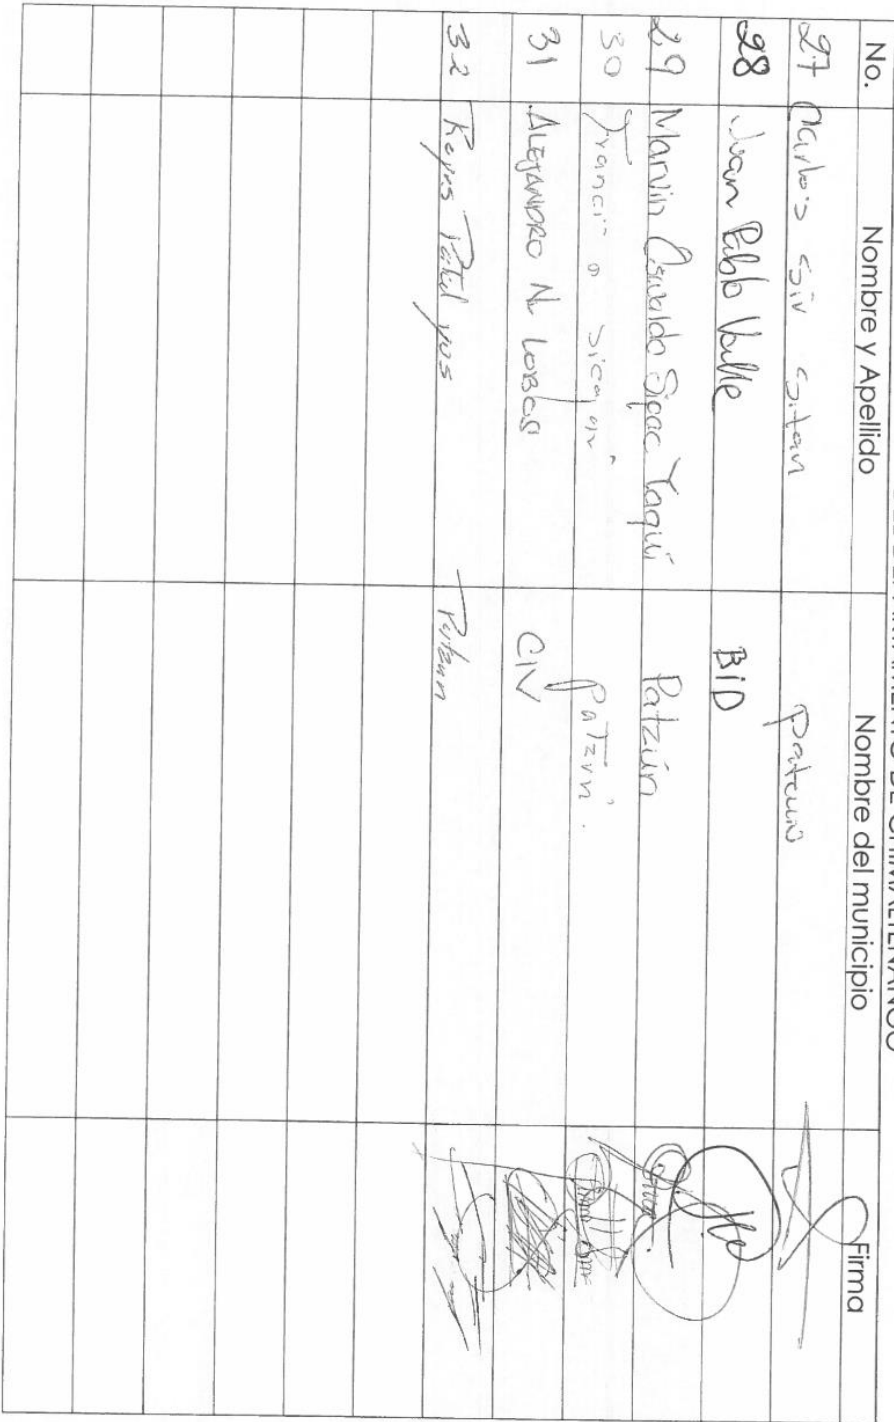 DE CHIMALTENANGO
No. Nombre y Apellido Nombre del municipio Firma
27 Carlos Siv Sitan Patzun
28 Juan Pablo Valle BID
29 Marvin Oswaldo Sipac Yaqui Patzún
30 Patzun.
31 ALEJANDRO N. LOBOS CIV
32 Reyes Patal yos Patzun